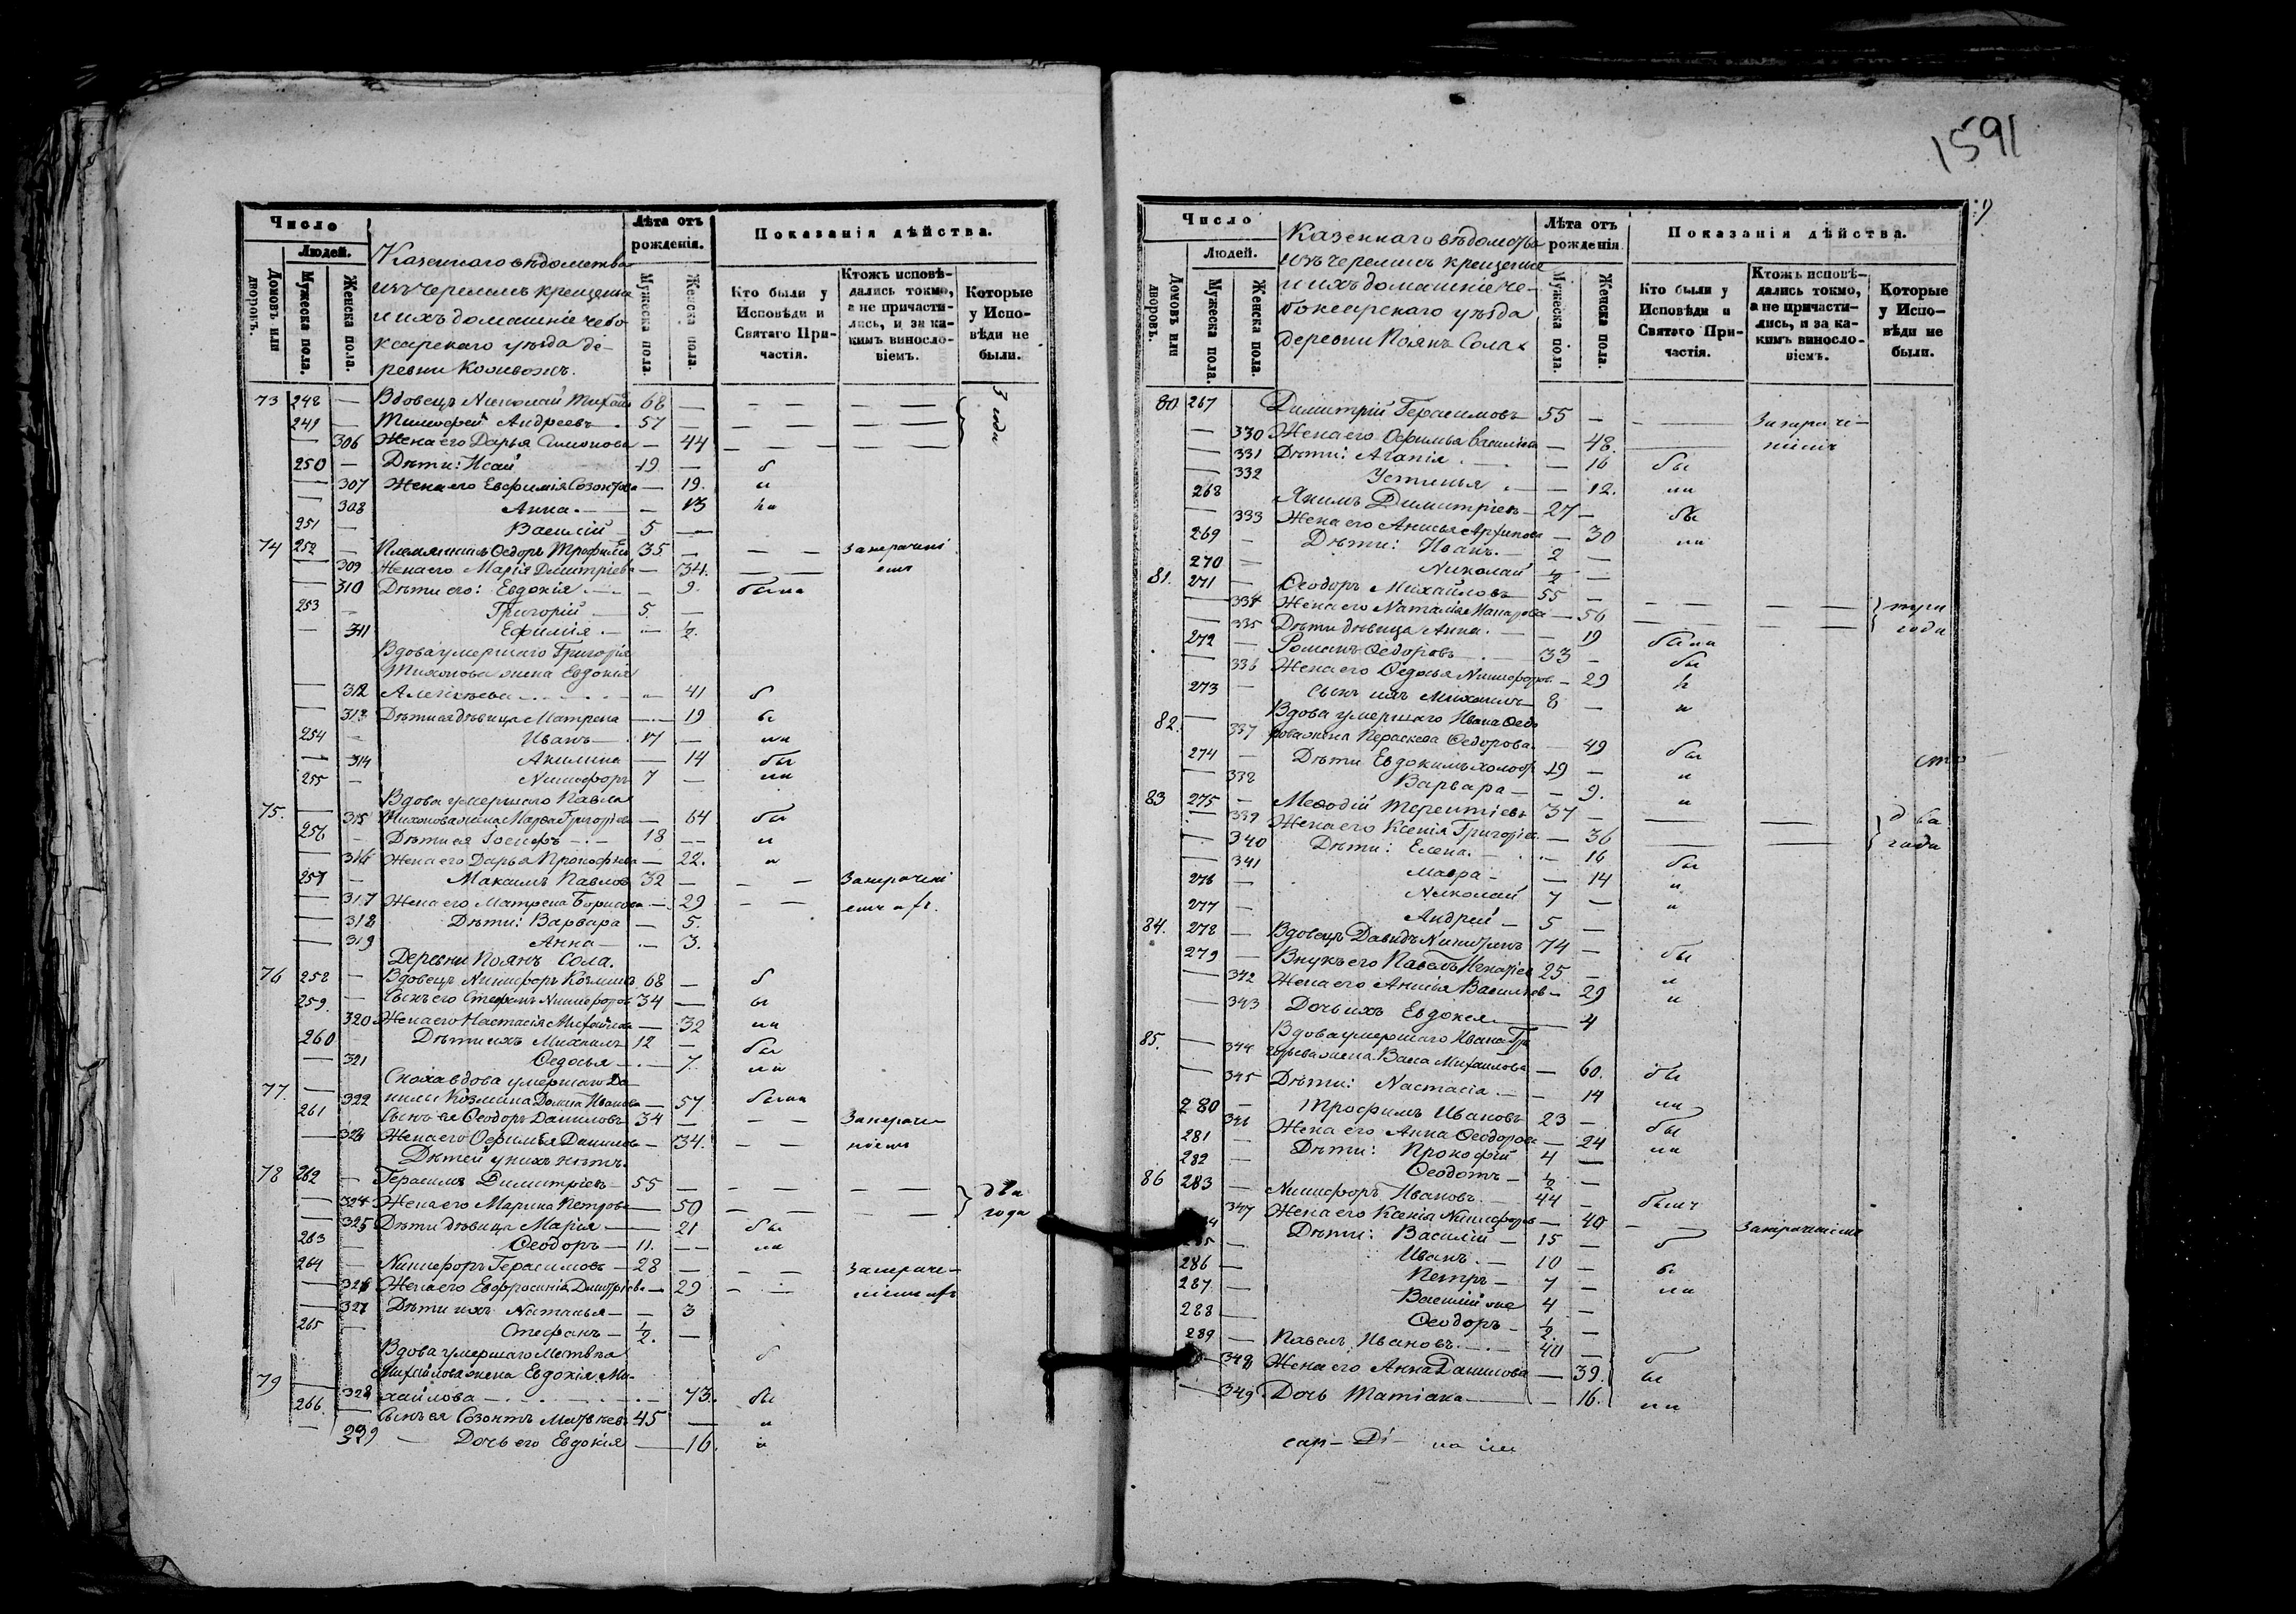 1591
Число
Людей.
Домовъ или дворовъ.
Мужеска пола.
Женска пола.
Казеннаго вѣдомства
изъ черемисъ крещеные
и ихъ домашніе чебо
ксарскаго уѣзда де-
ревни
Лѣта отъ рожденія.
Мужеска пола.
Женска пола.
Показанія дѣйства.
Кто были у Исповѣди и Святаго При-
частія.
Ктожъ исповѣ-
дались токмо, а не причасти-
лись, и за ка-
кимъ виносло-
віемъ.
Которые у Испо-
вѣди не были.
73 248 — Вдовецъ Николай 68 — — — — — 3 года
249 — Тимофей Андреевъ 57 — — — — —
— 306 Жена его Дарья Симонова — 44 — — — —
250 — Дѣти: Исай 19 — б
— 307 Жена его Евфимія Созонтова — 19. ы
— 308 Анна — 13
251 — Василій 5 —
74 252 — Племянникъ Ѳедоръ Трофимовъ 35 — — — За нераченi
— 309 Жена его Марія Димитріева — 34. — — емъ
— 310 Дѣти его: Евдокія — 9. были
253 — Григорій 5. —
— 311 Ефимія — ½.
Вдова умершаго Григорія
Тихонова жена Евдокія
— 312 Алексѣева — 41 б
— 313 Дѣти ея дѣвица Матрена — 19 ы
254 — Иванъ 17 — ли
— 314 Акилина — 14 бы
255 — Никифоръ 7 — ли
Вдова умершаго Павла
75. — 315 Тихонова жена Марѳа Григорьева — 64 бы
256 — Дѣти ея Іосифъ 18 — и
— 316 Жена его Дарья Прокофьева — 22. и
257 — Максимъ Павловъ 32 — — — За нераченi
— 317 Жена его Матрена Борисова — 29 — — емъ
— 318 Дѣти: Варвара — 5.
— 319 Анна — 3.
Деревни Поянъ Сола.
76 258 — Вдовецъ Никифоръ Козминъ 68 — б
259. — Сынъ его Стефанъ Никифоровъ 34 — ы
320 Жена его Настасія Михайлова — 32 ли
260 — Дѣти ихъ Михаилъ 12 — бы
— 321 Ѳедосья — 7. ли
Сноха вдова умершаго Да-
77. — 322 нилы Козмина Домна Иванова — 57 были
261 Сынъ ея Ѳеодоръ Даниловъ 34 — — — За нераче-
— 323 Жена его Офимья Данилова — 34. — — ніемъ
Дѣтей у нихъ нѣтъ.
78 262 — Герасимъ Димитріевъ 55 — — — — — два
— 324 Жена его Марина Петрова — 50 — — — — года
— 325 Дѣти дѣвица Марія — 21 бы
263 — Ѳеодоръ 11. — ли
264 — Никифоръ Герасимовъ 28 — — — За нераче-
— 326 Жена его Евфросинія Димитріева — 29 — — ніемъ
— 327 Дѣти ихъ Наталья — 3
265 — Стефанъ ½. —
Вдова умершаго Матвѣя б
Михайлова жена Евдокія Ми-
79 — 328 хайлова — 73. бы
266. — Сынъ ея Созонтъ Матвѣевъ 45 — и
— 329 — Дочь его Евдокія — 16. и
Число
Людей.
Домовъ или дворовъ.
Мужеска пола.
Женска пола.
Казеннаго вѣдомства
изъ черемисъ крещеные
и ихъ домашніе че-
боксарскаго уѣзда
деревни Поянъ Сола.
Лѣта отъ рожденія.
Мужеска пола.
Женска пола.
Показанія дѣйства.
Кто были у Исповѣди и Святаго При-
частія.
Ктожъ исповѣ-
дались токмо, а не причасти-
лись, и за ка-
кимъ винosло-
віемъ.
Которые у Испо-
вѣди не были.
80 267 Димитрій Герасимовъ 55 — — За нераче-
— 330 Жена его Офимья Васильева — 48. — ніемъ
— 331 Дѣти: Агапія — 16 бы
— 332 Устинья — 12. ли
268 Якимъ Димитріевъ 27 — бы
— 333 Жена его Анисья Архипова — 30 ли
269 — Дѣти: Иванъ. 2 —
270 — Николай ½ —
81. 271 — Ѳеодоръ Михайловъ 55 — — — — — три
— 334 Жена его Наталія Макарова — 56 — — — — года
— 335 Дѣти дѣвица Анна. — 19 была
272 — Романъ Ѳедоровъ 33 — бы
— 336 Жена его Ѳедосья Никифоров. — 29
273 — Сынъ ихъ Михаилъ 8 — и
Вдова умершаго Ивана Ѳедо
82. — 337 рова жена Параскева Ѳедорова — 49 бы
274 — Дѣти Евдокимъ холост 19 — и
— 338 Варвара — 9. и
83 275 — Меѳодій Терентіевъ 37 — — — два
— 339 Жена его Ксенія Григорiев. — 36 — — года
— 340 Дѣти: Елена. — 16 бы
— 341 Мавра — 14 и
276 — Николай 7 — и
277 — Андрей 5 —
84. 278 — Вдовецъ Давидъ Никитинъ 74 — бы
279 — Внукъ его Павелъ Игнатiев 25 — и
— 342 Жена его Анисья Васильев — 29 и
— 343 Дочь ихъ Евдокея — 4
Вдова умершаго Ивана Гри
85. — 344 горьева жена Васа Михаилова — 60. бы
— 345 Дѣти: Настасіа — 14 ли
280 — Трофимъ Ивановъ 23 — бы
— 346 Жена его Анна Ѳеодорова — 24 ли
281 — Дѣти: Прокофій 4 —
282 — Ѳеодотъ ½ —
86 283 — Никифоръ Ивановъ. 44 — былъ
347 Жена его Ксенія Никифоров — 40 — — За нераченіемъ
— Дѣти: Василій 15 — б
286 — Иванъ. 10 — ы
287 — Петръ 7 — ли
288 — Василій же 4 —
Ѳеодоръ ½ —
289 — Павелъ Ивановъ. 40 — б
348 Жена его Анна Данилова — 39. ы
— 349. Дочь Татіана — 16. ли